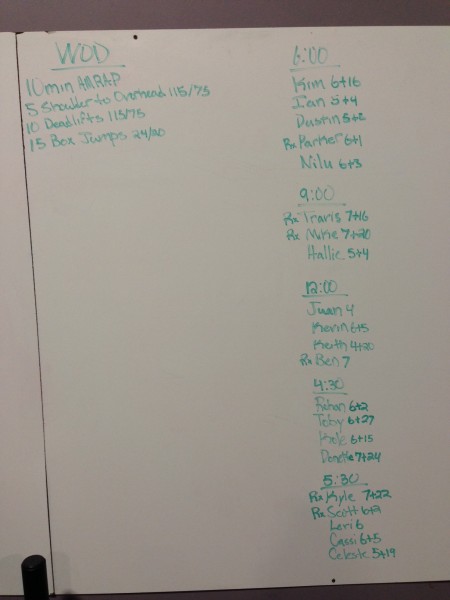 WOD
10 min AMRAP
5 Shoulder to Overhead 115/75
10 Deadlifts 115/75
15 Box Jumps 24/20
6:00
Kim 6+16
5+4
Dustin 5+2
Rx Parker 6+1
Nilu 6+3
9:00
Rx Travis 7+16
Rx Mike 7+20
Hallie 5+4
12:00
Juan 4
Kevin 6+5
Keith 4+20
Rx Ben 7
4:30
6+2
Toby 6+27
Kole 6+15
7+24
5:30
Rx Kyle 7+22
Rx Scott
Leri 6
Cassi 6+5
Celeste 5+19